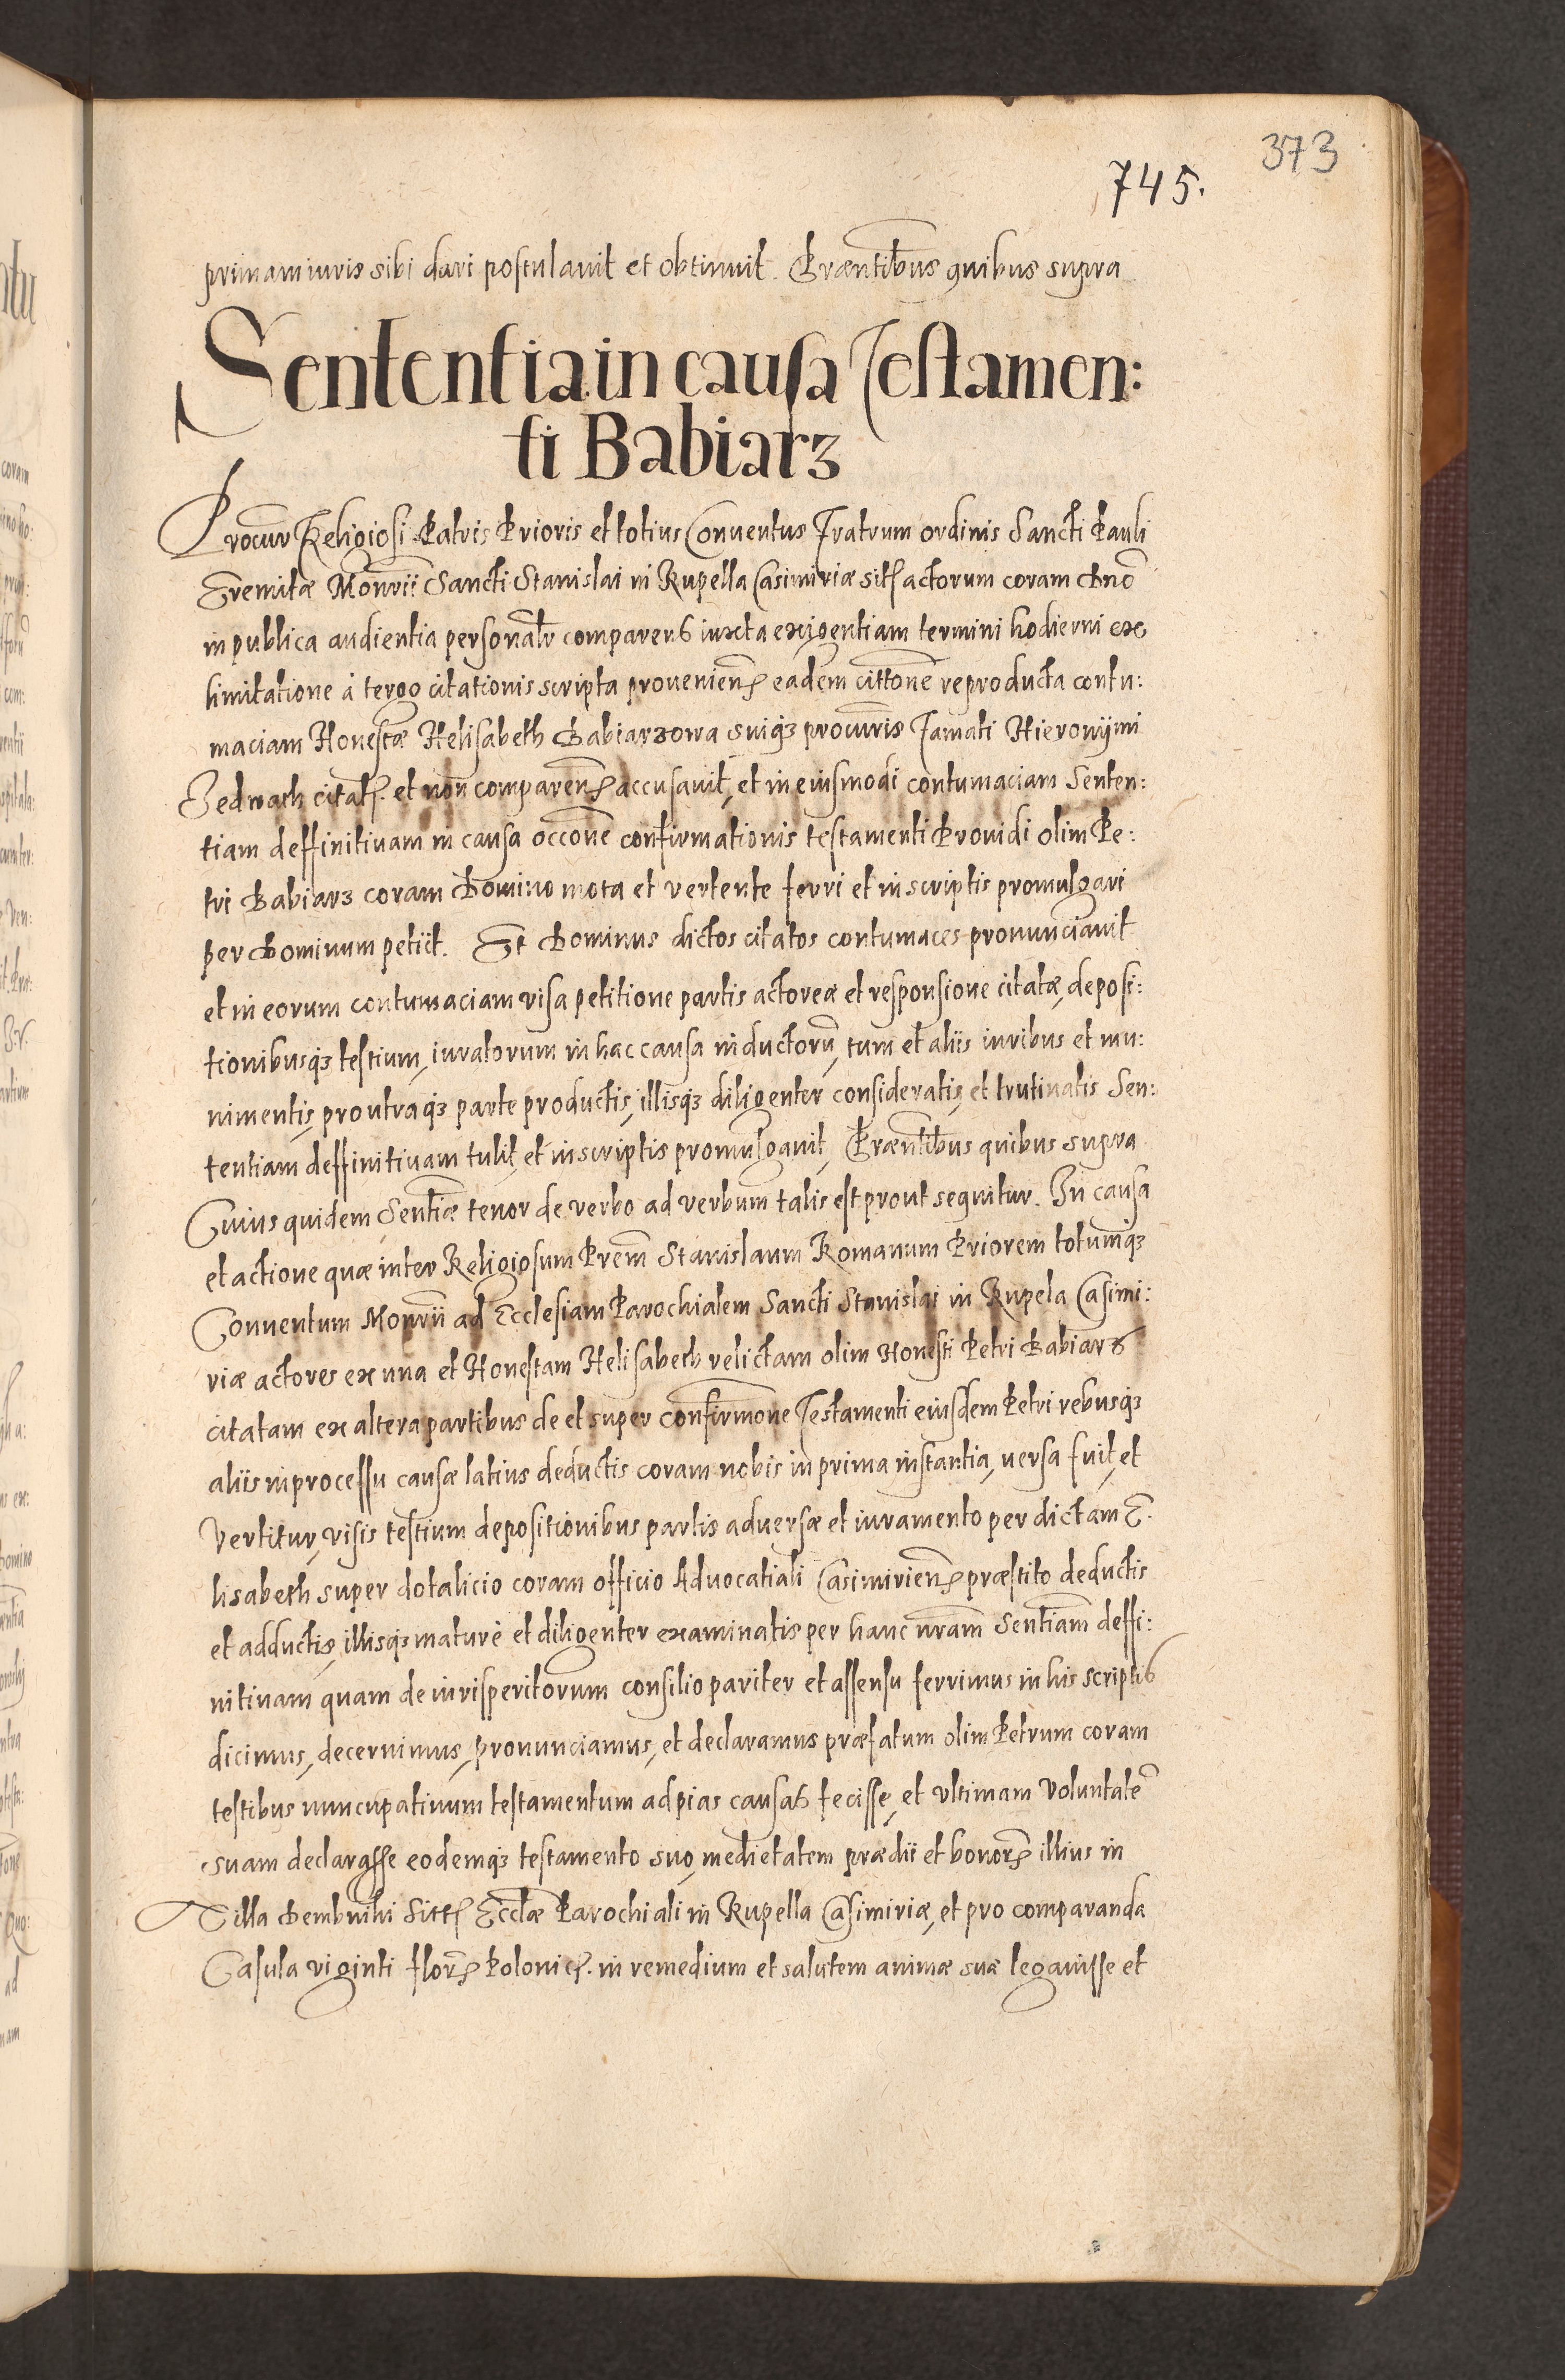 373
745.
primam iuris sibi dari postulavit et obtinuit. Præntibus quibus supra
Sententia in causa Testamen:
ti Babiarz
Procur Religiosi Patris Prioris et totius Conventus Fratrum ordinis Sancti Pauli
Eremitæ Monrii Sancti Stanislai in Rupella Casimiriæ sit actorum coram Dno
in publica audientia personalr comparens iuxta exigentiam termini hodierni ex
limitatione à tergo citationis scripta provenien eadem cittone reproducta contu:
maciam Honestæ Helisabeth Babiarzowa suiq3 procuris Famati Hieronÿmi
citat. et non comparen accusavit, et in eiusmodi contumaciam Senten:
tiam deffinitivam in causa occone confirmationis testamenti Providi olim Pe:
tri Babiarz coram Domino mota et vertente ferri et in scriptis promulgari
per Dominum petiit. Et Dominus dictos citatos contumaces pronunciavit
et in eorum contumaciam visa petitione partis actoreæ et responsione citatæ, deposi:
tionibusq3 testium, iuratorum in hac causa inductorū, tum et aliis iuribus et mu:
nimentis, pro utraq3 parte productis, illisq3 diligenter consideratis, et trutinatis Sen:
tentiam deffinitivam tulit, et in scriptis promulgavit, Præntibus quibus supra
Cuius quidem Sentiæ tenor de verbo ad verbum talis est prout sequitur. In causa
et actione quæ inter Religiosum Prem Stanislaum Romanum Priorem totumq3
Conventum Monrii ad Ecclesiam Parochialem Sancti Stanislai in Rupela Casimi:
riæ actores ex una et Honestam Helisabeth relictam olim Honesti Petri Babiarz
citatam ex altera partibus de et super confirmone Testamenti eiusdem Petri rebusq3
aliis in processu causæ latius deductis coram nobis in prima instantia, versa fuit, et
Vertitur, visis testium depositionibus partis adversæ et iuramento per dictam E.
lisabeth super dotalicio coram officio Advocatiali Casimirien præstito deductis
et adductis, illisq3 maturè et diligenter examinatis per hanc nram Sentiam deffi:
nitivam quam de iurisperitorum consilio pariter et assensu ferrimus in his scriptis
dicimus, decernimus, pronunciamus, et declaramus præfatum olim Petrum coram
testibus nuncupativum testamentum ad pias causas fecisse, et ultimam Voluntatē
suam declarasse eodemq3 testamento suo, medietatem prædii et bonor illius in
Villa Dembniki Sitt Ecclæ Parochiali in Rupella Casimiriæ, et pro comparanda
Casula viginti flor Polonic. in remedium et salutem animæ suæ legavisse et